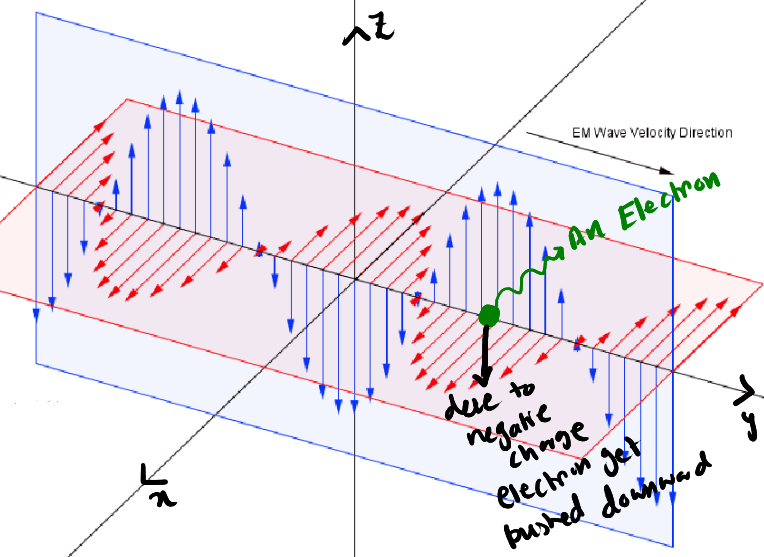 Z
EM Wave Velocity Direction
An Electron
due to
negative
charge
electron get
pushed downward
y
x